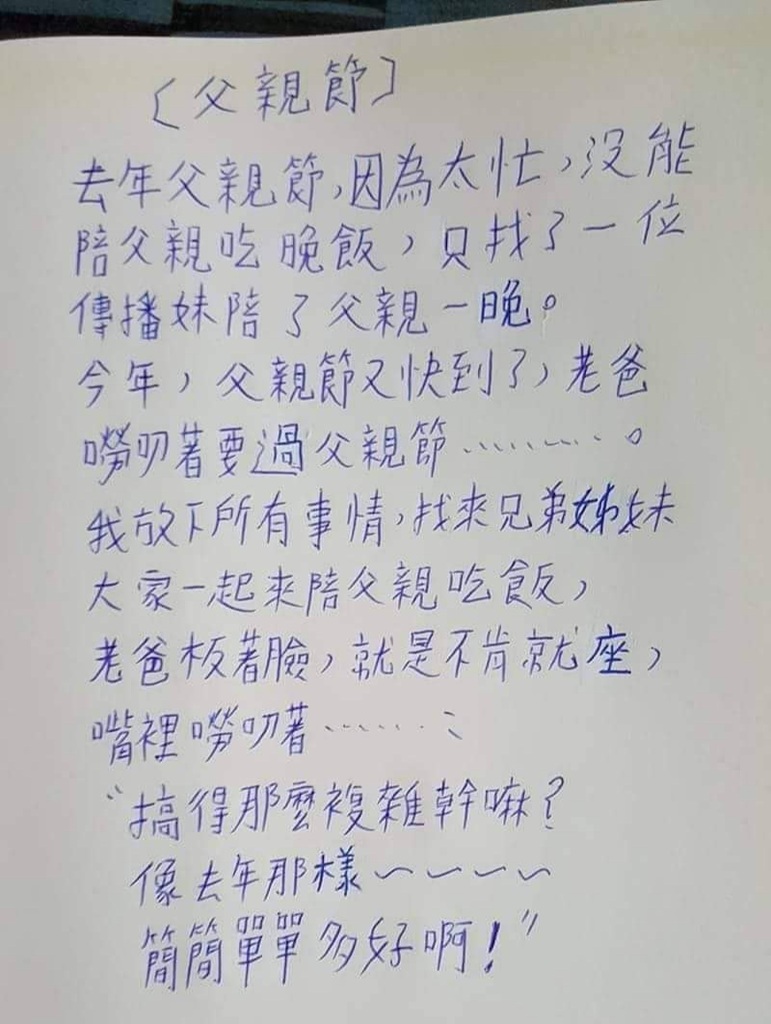 〔父親節〕
去年父親節,因為太忙,沒能
陪父親吃晚飯,只找了一位
傳播妹陪了父親一晚。
今年,父親節又快到了,老爸
嘮叨著要過父親節………。
我放下所有事情,找來兄弟姊妹
大家一起來陪父親吃飯,
老爸板著臉,就是不肯就座,
嘴裡嘮叨著……:
"搞得那麼複雜幹嘛?
像去年那樣~~~~
簡簡單單多好啊!"